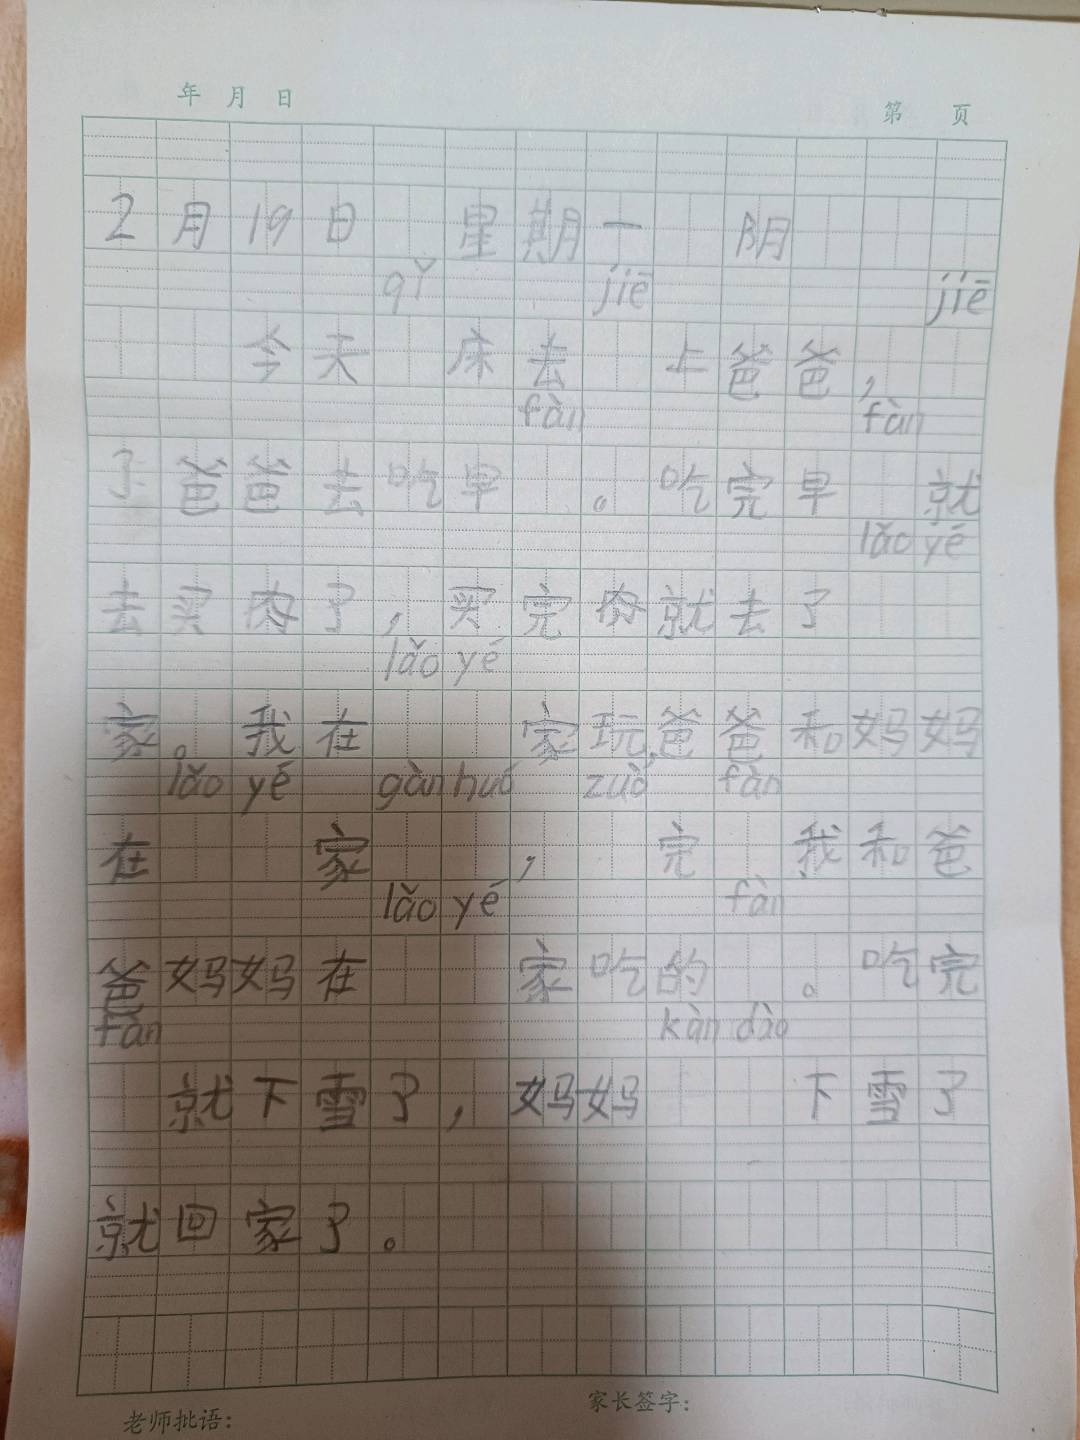 年 月 日
第 页
2月19日 星期一 阴
qǐ jiē jiē
今天 床去 上爸爸，
fàn fàn
了爸爸去吃早 。吃完早 就
lǎo yé
去买肉了，买完肉就去了
lǎo yé
家。我在 家玩，爸爸和妈妈
lǎo yé gàn huó zuò fàn
在 家 ， 完 我和爸
lǎo yé fàn
爸妈妈在 家吃的 。吃完
fàn kàn dào
就下雪了，妈妈 下雪了
就回家了。
老师批语：
家长签字：